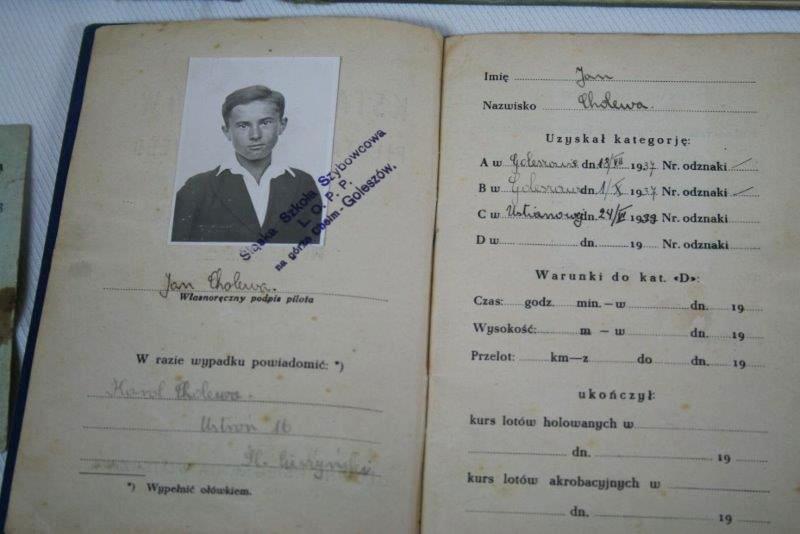 Śląska Szkoła Szybowcowa
L. O. P. P.
na górze Chełm-Goleszów.
Jan Cholewa.
Własnoręczny podpis pilota
W razie wypadku powiadomić: *)
Karol Cholewa
Ustroń 16
Śl. Cieszyński
*) Wypełnić ołówkiem.
Imię Jan
Nazwisko Cholewa.
Uzyskał kategorję:
A w Goleszowie dn. 13/VII 1937 Nr. odznaki —
B w Goleszowie dn. 1/X 1937 Nr. odznaki —
C w Ustianowej dn. 24/VI 1939 Nr. odznaki
D w dn. 19 Nr. odznaki
Warunki do kat. «D»:
Czas: godz. min. – w dn. 19
Wysokość: m – w dn. 19
Przelot: km—z do dn. 19
ukończył:
kurs lotów holowanych w
dn. 19
kurs lotów akrobacyjnych w
dn. 19